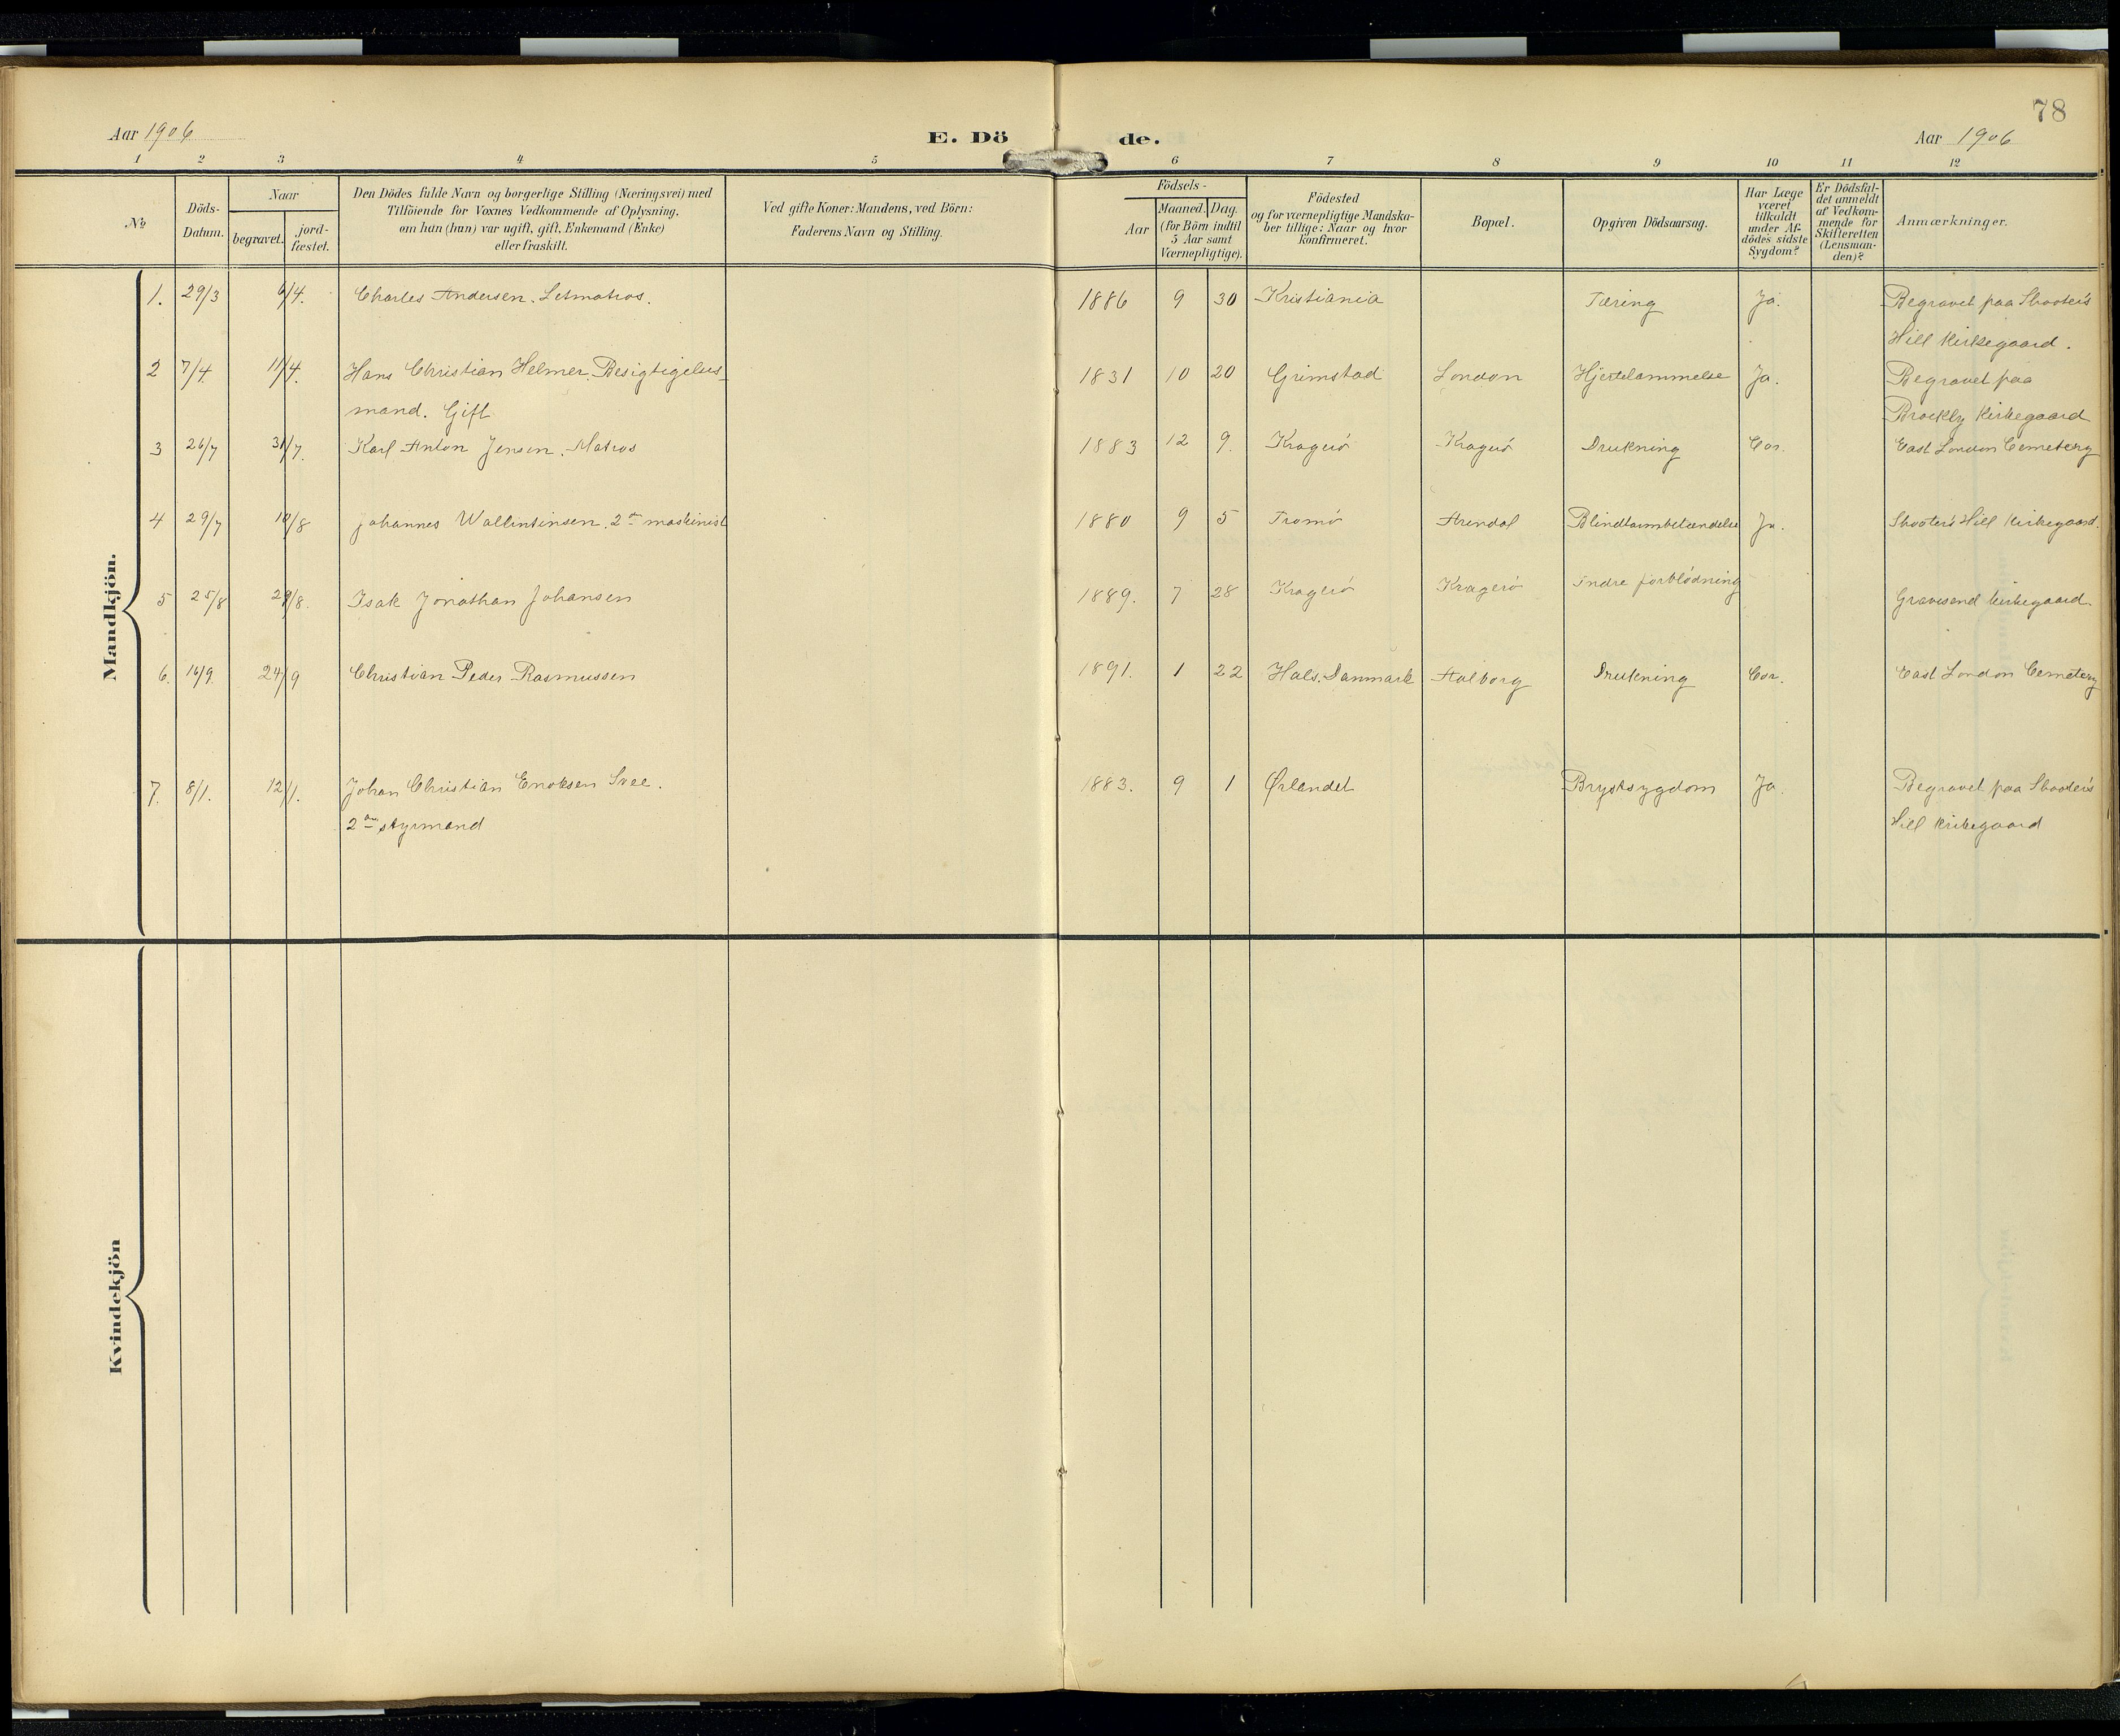 78
Aar 1906
E. Dö
de.
Aar 1906
1 2 3 4 5 6 7 8 9 10 11 12
№
Döds-
Datum.
Naar
begravet.
jord-
fæstet.
Den Dödes fulde Navn og borgerlige Stilling (Næringsvei) med
Tilföiende for Voxnes Vedkommende af Oplysning,
om han (hun) var ugift, gift, Enkemand (Enke)
eller fraskilt.
Ved gifte Koner: Mandens, ved Börn:
Faderens Navn og Stilling.
Födsels-
Aar
Maaned. Dag.
(for Börn indtil
5 Aar samt
Værnepligtige).
Födested
og for værnepligtige Mandska-
ber tillige: Naar og hvor
konfirmeret.
Bopæl.
Opgiven Dödsaarsag.
Har Læge
været
tilkaldt
under Af-
dödes sidste
Sygdom?
Er Dödsfal-
det anmeldt
af Vedkom-
mende for
Skifteretten
(Lensman-
den)?
Anmærkninger.
Mandkjön.
1. 29/3 6/4. Charles Andersen. Letmatros. 1886 9 30 Kristiania Tæring Ja. Begravet paa Shooter's
Hill Kirkegaard.
2 7/4 11/4. Hans Christian Helmer. Besigtigelses- 1831 10 20 Grimstad London Hjertelammelse Ja. Begravet paa
mand. Gift Brockly Kirkegaard
3 26/7 31/7. Karl Anton Jensen. Matros 1883 12 9. Kragerö Kragerö Drukning Cor. East London Cemetery
4 29/7 10/8 Johannes Wallintinsen. 2den maskinist 1880 9 5 Tromö Arendal Blindtarmbetændelse Ja. Shooter's Hill Kirkegaard.
5 25/8 29/8. Isak Jonathan Johansen 1889. 7 28 Kragerö Kragerö Indre forblödning Gravesend kirkegaard.
6. 16/9. 24/9 Christian Peder Rasmussen 1891. 1 22 Hals. Danmark Aalborg Drukning Cor. East London Cemetery
7. 8/1. 12/1. Johan Christian Enoksen Svee. 1883. 9 1 Ørlandet Brystsygdom Ja. Begravet paa Shooter's
2den styrmand Hill Kirkegaard
Kvindekjön